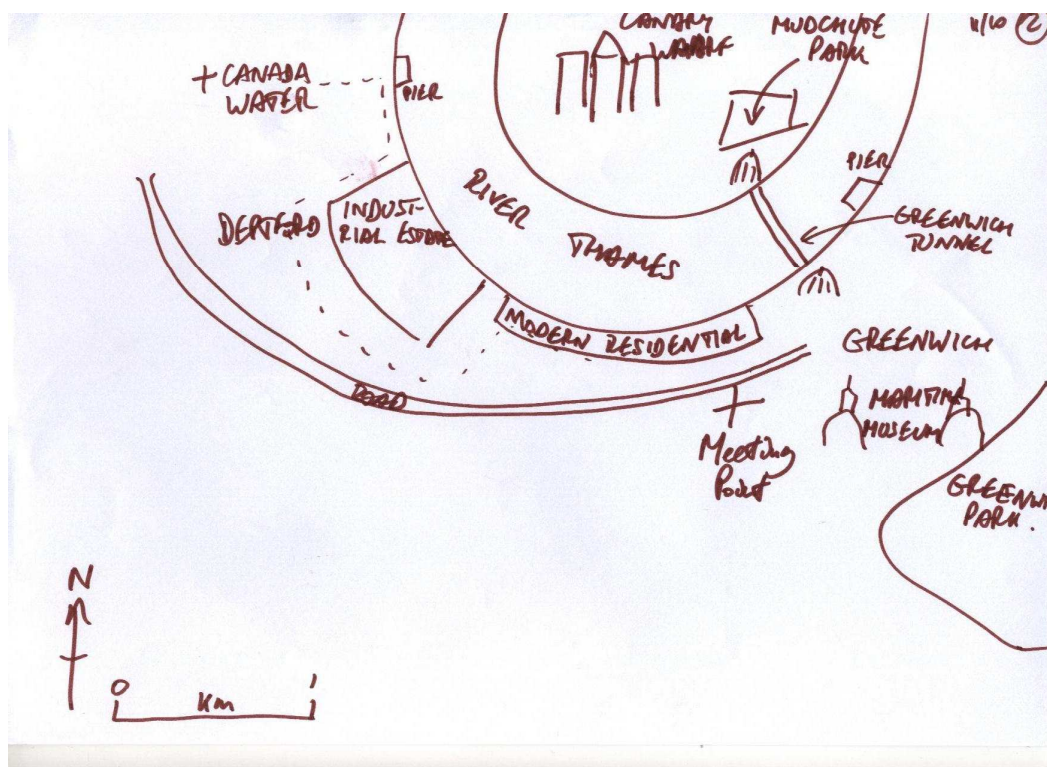 CANARY
WHARF
MUDCHUTE
PARK
11/10 2
+ CANADA
WATER
PIER
PIER
DEPTFORD
INDUST-
RIAL ESTATE
RIVER
THAMES
GREENWICH
TUNNEL
MODERN RESIDENTIAL
GREENWICH
ROAD
MARITIME
MUSEUM
Meeting
Point
GREENW
PARK.
N
0 1
Km